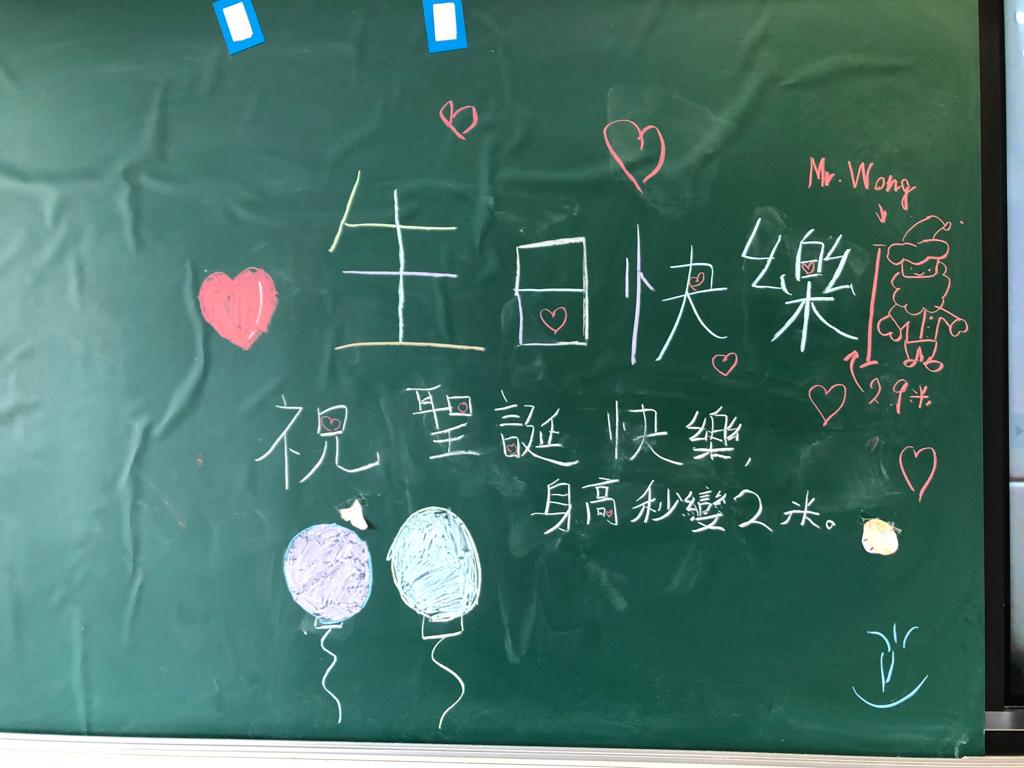 Mr. Wong
生日快樂
29米
祝聖誕快樂,
身高秒變2米。